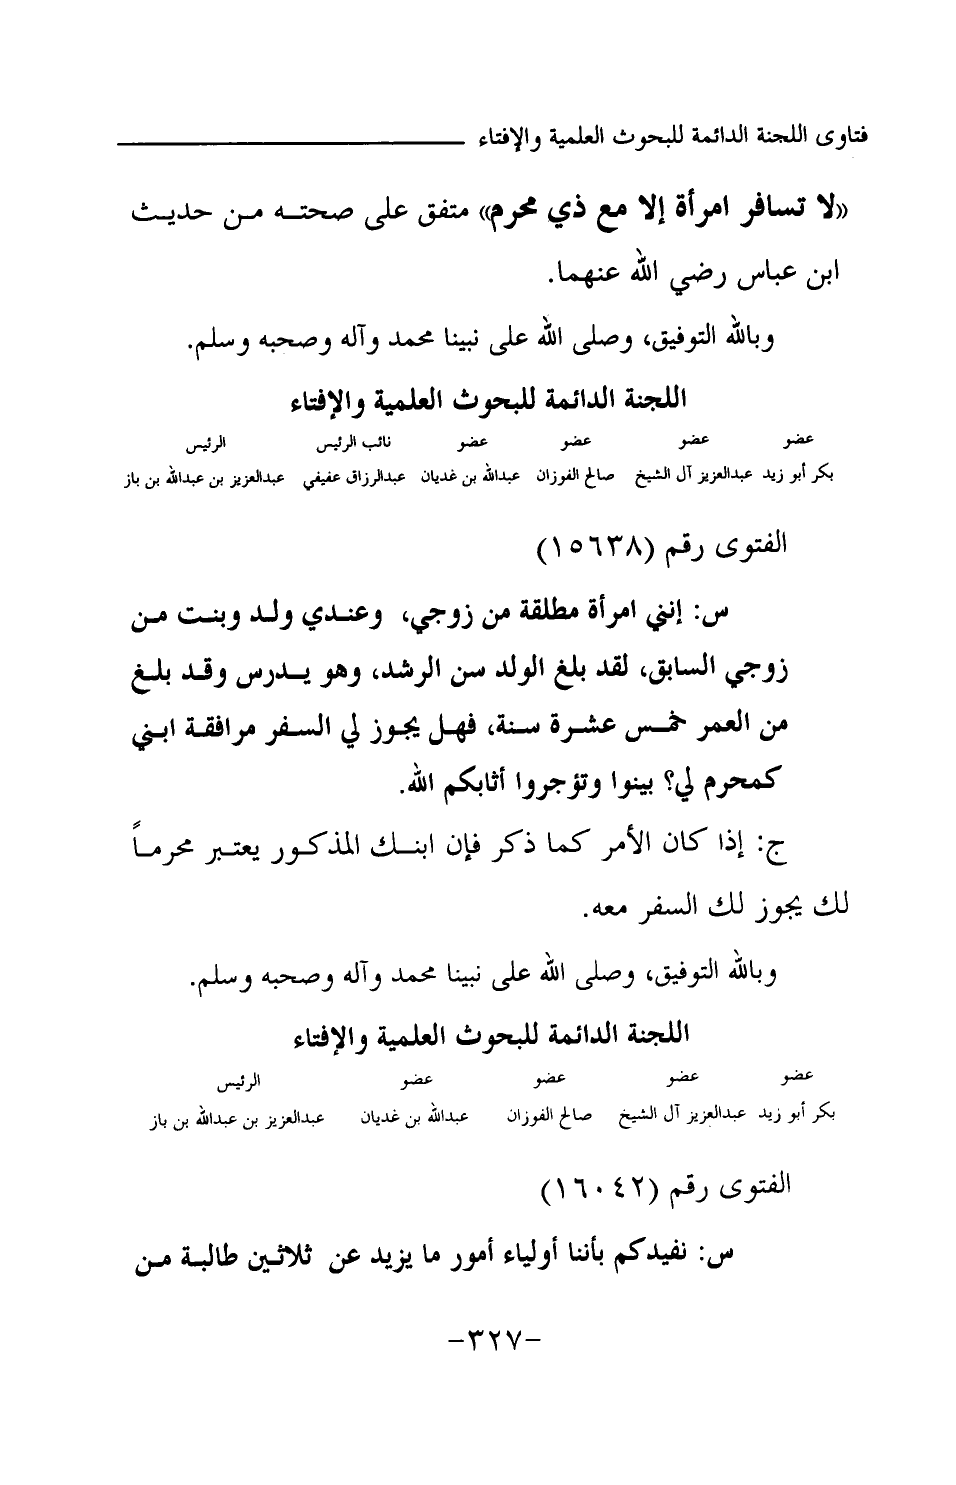 فتاوى اللجنة الدائمة للبحوث العلمية والإفتاء
«لا تسافر امرأة إلا مع ذي محرم» متفق على صحته من حديث
ابن عباس رضي الله عنهما.
وبالله التوفيق، وصلى الله على نبينا محمد وآله وصحبه وسلم.
اللجنة الدائمة للبحوث العلمية والإفتاء
عضو عضو عضو عضو نائب الرئيس الرئيس
بكر أبو زيد عبدالعزيز آل الشيخ صالح الفوزان عبدالله بن غديان عبدالرزاق عفيفي عبدالعزيز بن عبدالله بن باز
الفتوى رقم (١٥٦٣٨)
س: إنني امرأة مطلقة من زوجي، وعندي ولد وبنت من
زوجي السابق، لقد بلغ الولد سن الرشد، وهو يدرس وقد بلغ
من العمر خمس عشرة سنة، فهل يجوز لي السفر مرافقة ابني
كمحرم لي؟ بينوا وتؤجروا أثابكم الله.
ج: إذا كان الأمر كما ذكر فإن ابنك المذكور يعتبر محرماً
لك يجوز لك السفر معه.
وبالله التوفيق، وصلى الله على نبينا محمد وآله وصحبه وسلم.
اللجنة الدائمة للبحوث العلمية والإفتاء
عضو عضو عضو عضو الرئيس
بكر أبو زيد عبدالعزيز آل الشيخ صالح الفوزان عبدالله بن غديان عبدالعزيز بن عبدالله بن باز
الفتوى رقم (١٦٠٤٢)
س: نفيدكم بأننا أولياء أمور ما يزيد عن ثلاثين طالبة من
-٣٢٧-